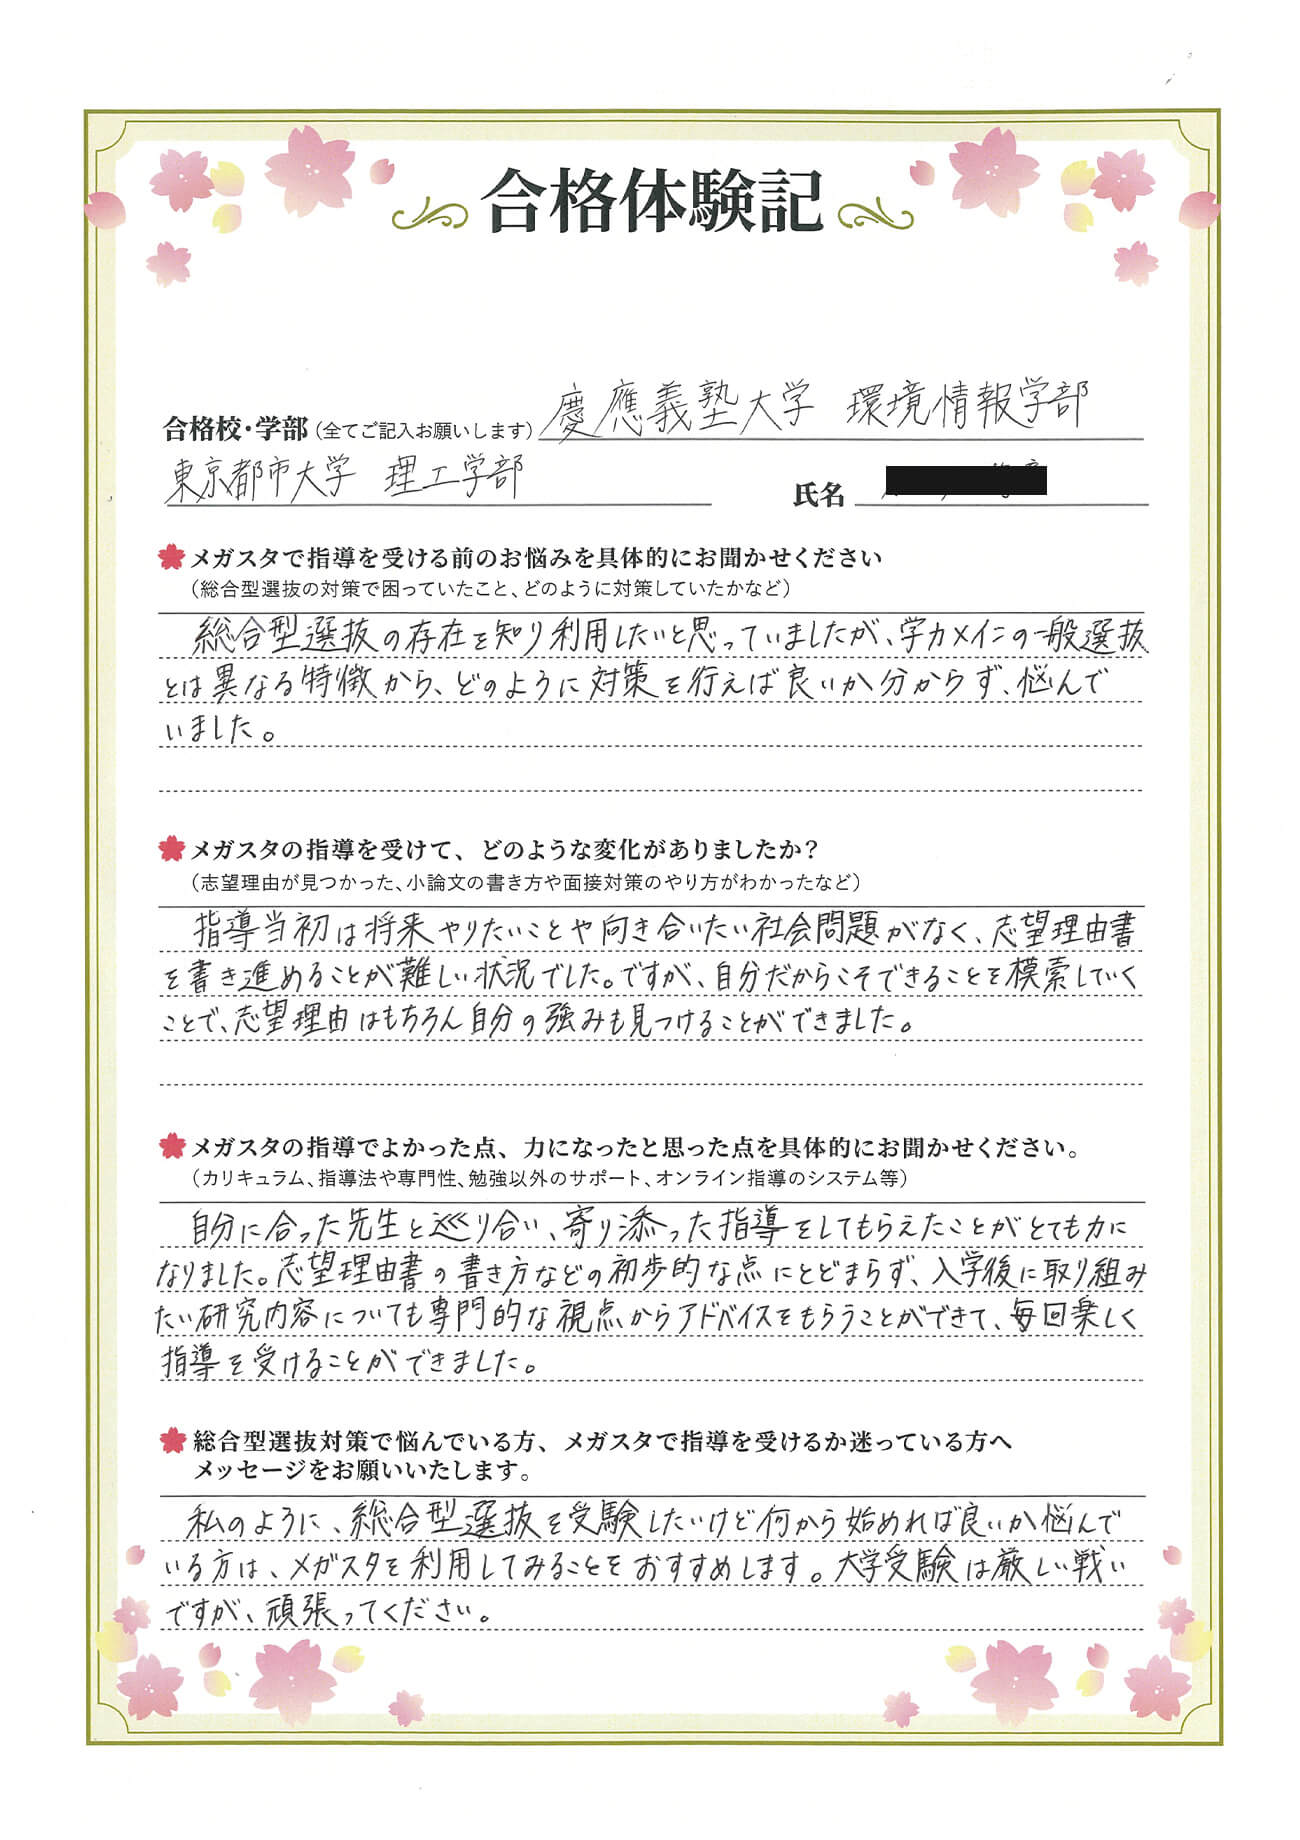 合格体験記
合格校・学部（全てご記入お願いします）慶應義塾大学 環境情報学部
東京都市大学 理工学部 氏名
メガスタで指導を受ける前のお悩みを具体的にお聞かせください
（総合型選抜の対策で困っていたこと、どのように対策していたかなど）
総合型選抜の存在を知り利用したいと思っていましたが、学力メインの一般選抜
とは異なる特徴から、どのように対策を行えば良いか分からず、悩んで
いました。
メガスタの指導を受けて、どのような変化がありましたか？
（志望理由が見つかった、小論文の書き方や面接対策のやり方がわかったなど）
指導当初は将来やりたいことや向き合いたい社会問題がなく、志望理由書
を書き進めることが難しい状況でした。ですが、自分だからこそできることを模索していく
ことで、志望理由はもちろん自分の強みも見つけることができました。
メガスタの指導でよかった点、力になったと思った点を具体的にお聞かせください。
（カリキュラム、指導法や専門性、勉強以外のサポート、オンライン指導のシステム等）
自分に合った先生と巡り合い、寄り添った指導をしてもらえたことがとても力に
なりました。志望理由書の書き方などの初歩的な点にとどまらず、入学後に取り組み
たい研究内容についても専門的な視点からアドバイスをもらうことができて、毎回楽しく
指導を受けることができました。
総合型選抜対策で悩んでいる方、メガスタで指導を受けるか迷っている方へ
メッセージをお願いいたします。
私のように、総合型選抜を受験したいけど何から始めれば良いか悩んで
いる方は、メガスタを利用してみることをおすすめします。大学受験は厳しい戦い
ですが、頑張ってください。